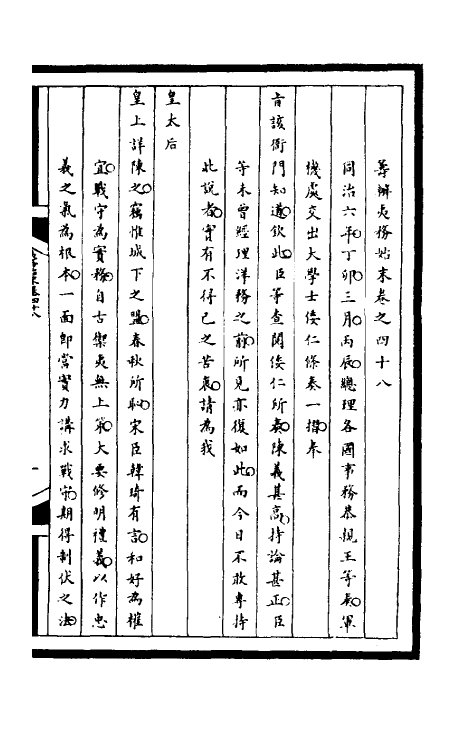 籌辦夷務始末卷之四十八
同治六年丁卯三月丙辰總理各國事務恭親王等奏軍
機處交出大學士倭仁條奏一摺奉
旨該衙門知道欽此臣等查閱倭仁所奏陳義甚高持論甚正臣
等未曾經理洋務之前所見亦復如此而今日不敢專持
此說者實有不得已之苦衷請為我
皇太后
皇上詳陳之竊惟城下之盟春秋所恥宋臣韓琦有言和好為權
宜戰守為實務自古禦夷無上策大要修明禮義以作忠
義之氣為根本一面即當實力講求戰守期得制伏之法